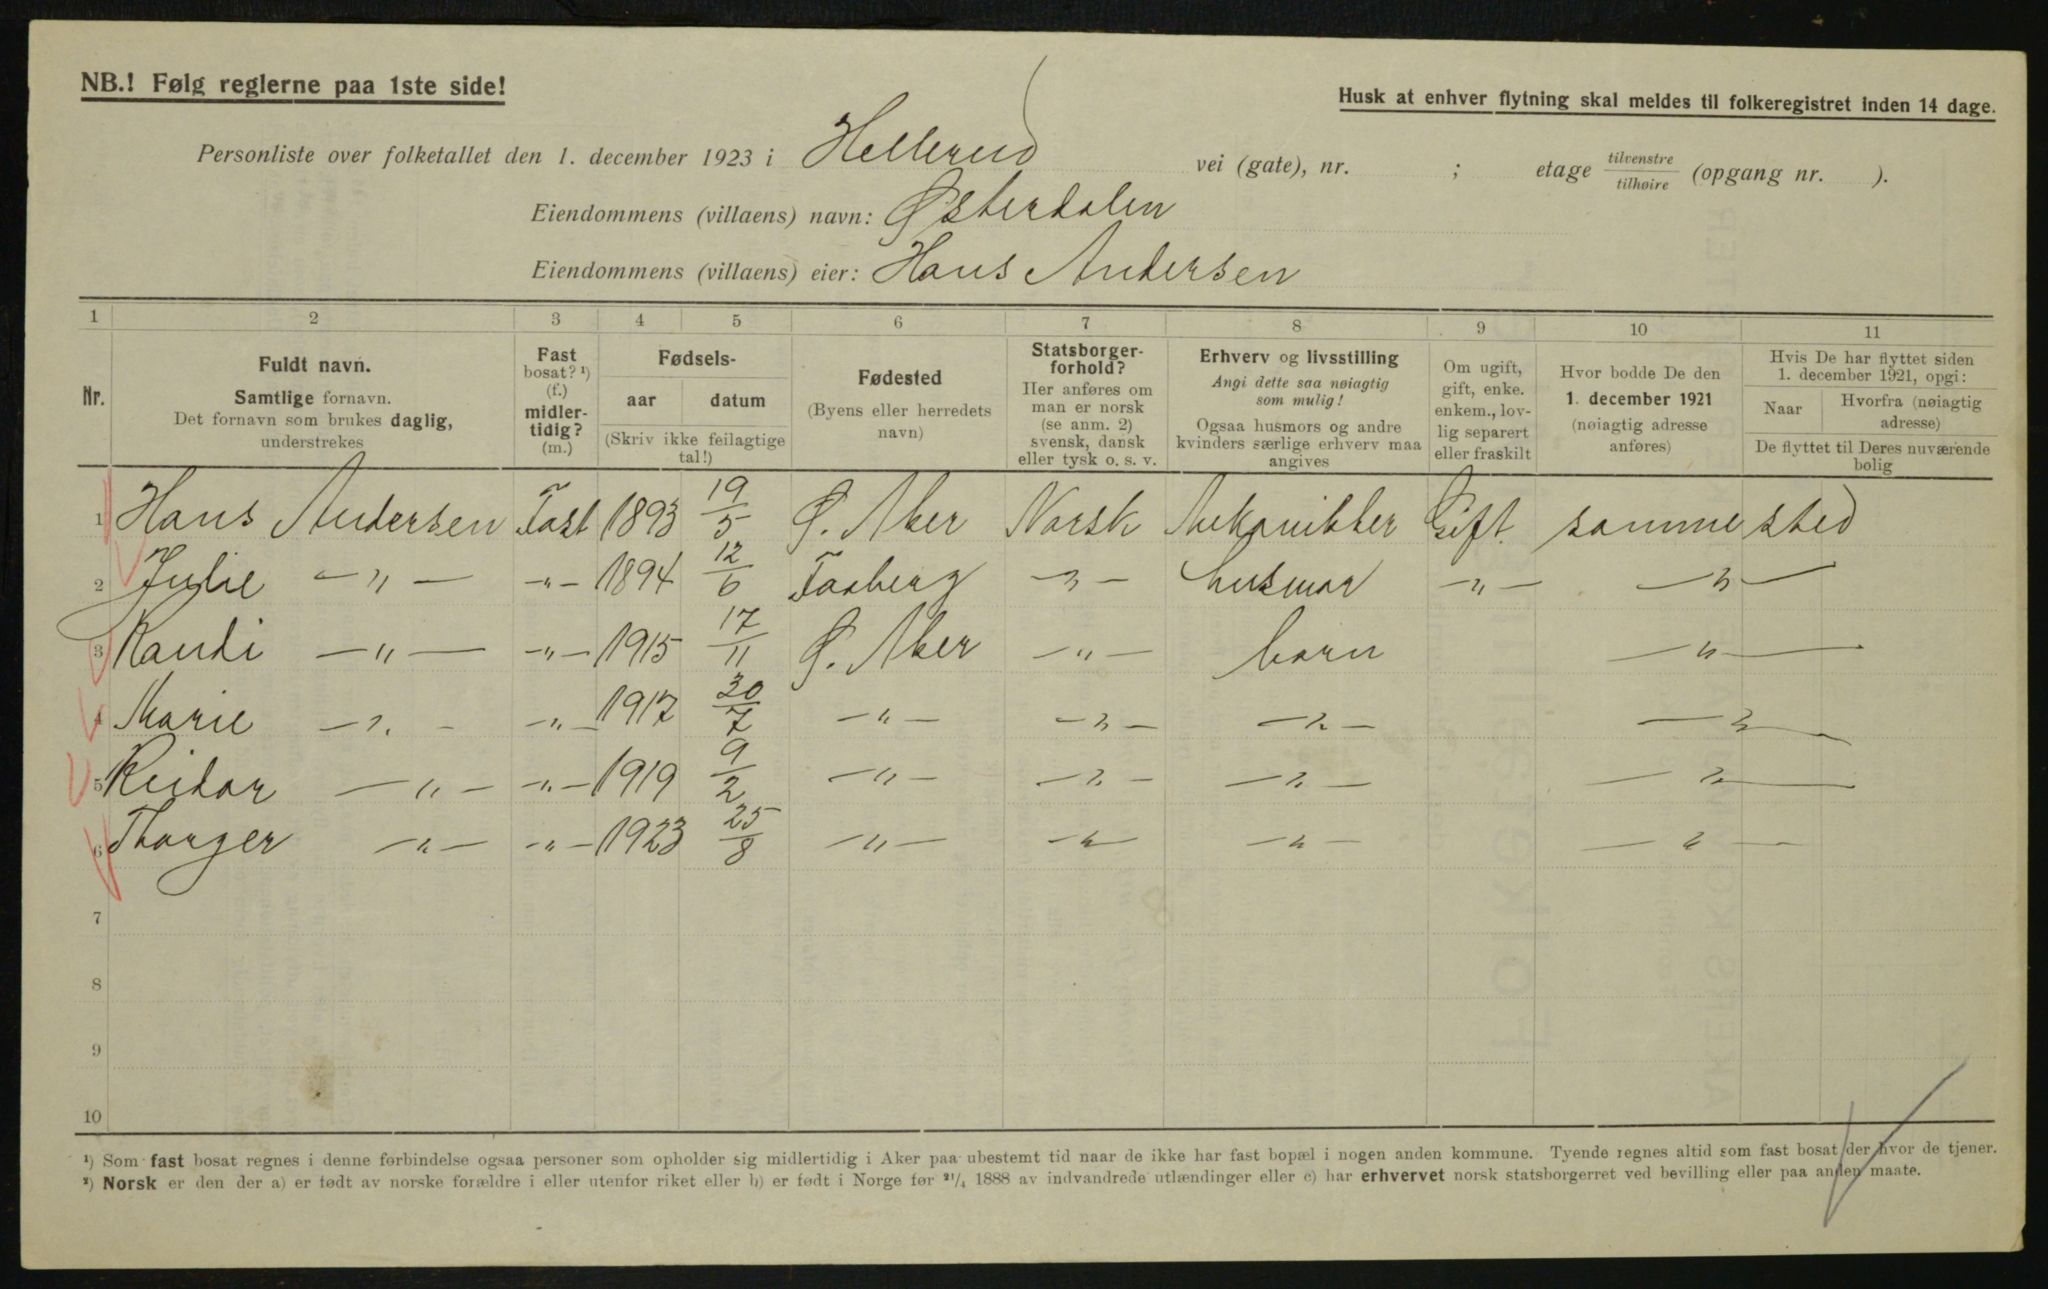 NB.! Følg reglerne paa 1ste side!
Husk at enhver flytning skal meldes til folkeregistret inden 14 dage.
Personliste over folketallet den 1. december 1923 i Hellerud vei (gate), nr. ; etage tilvenstre/tilhøire (opgang nr. ).
Eiendommens (villaens) navn: Østerdalen
Eiendommens (villaens) eier: Hans Andersen
1 2 3 4 5 6 7 8 9 10 11
Nr.
Fuldt navn.
Samtlige fornavn.
Det fornavn som brukes daglig,
understrekes
Fast
bosat? ¹)
(f.)
midler-
tidig?
(m.)
Fødsels-
aar datum
(Skriv ikke feilagtige
tal!)
Fødested
(Byens eller herredets
navn)
Statsborger-
forhold?
Her anføres om
man er norsk
(se anm. 2)
svensk, dansk
eller tysk o. s. v.
Erhverv og livsstilling
Angi dette saa nøiagtig
som mulig!
Ogsaa husmors og andre
kvinders særlige erhverv maa
angives
Om ugift,
gift, enke.
enkem., lov-
lig separert
eller fraskilt
Hvor bodde De den
1. december 1921
(nøiagtig adresse
anføres)
Hvis De har flyttet siden
1. december 1921, opgi:
Naar
Hvorfra (nøiagtig
adresse)
De flyttet til Deres nuværende
bolig
1 Hans Andersen Fast 1893 19/5 Ø. Aker Norsk Mekanikker Gift sammested
2 Julie — " — — " — 1894 12/6 Faaberg — " — husmor — " — — " —
3 Randi — " — — " — 1915 17/11 Ø. Aker — " — barn — " —
4 Marie — " — — " — 1917 30/7 — " — — " — — " — — " —
5 Reidar — " — — " — 1919 9/2 — " — — " — — " — — " —
6 Thorger — " — — " — 1923 25/8 — " — — " — — " — — " —
7
8
9
10
¹) Som fast bosat regnes i denne forbindelse ogsaa personer som opholder sig midlertidig i Aker paa ubestemt tid naar de ikke har fast bopæl i nogen anden kommune. Tyende regnes altid som fast bosat der hvor de tjener.
²) Norsk er den der a) er født av norske forældre i eller utenfor riket eller b) er født i Norge før ²¹/₄ 1888 av indvandrede utlændinger eller c) har erhvervet norsk statsborgerret ved bevilling eller paa anden maate.